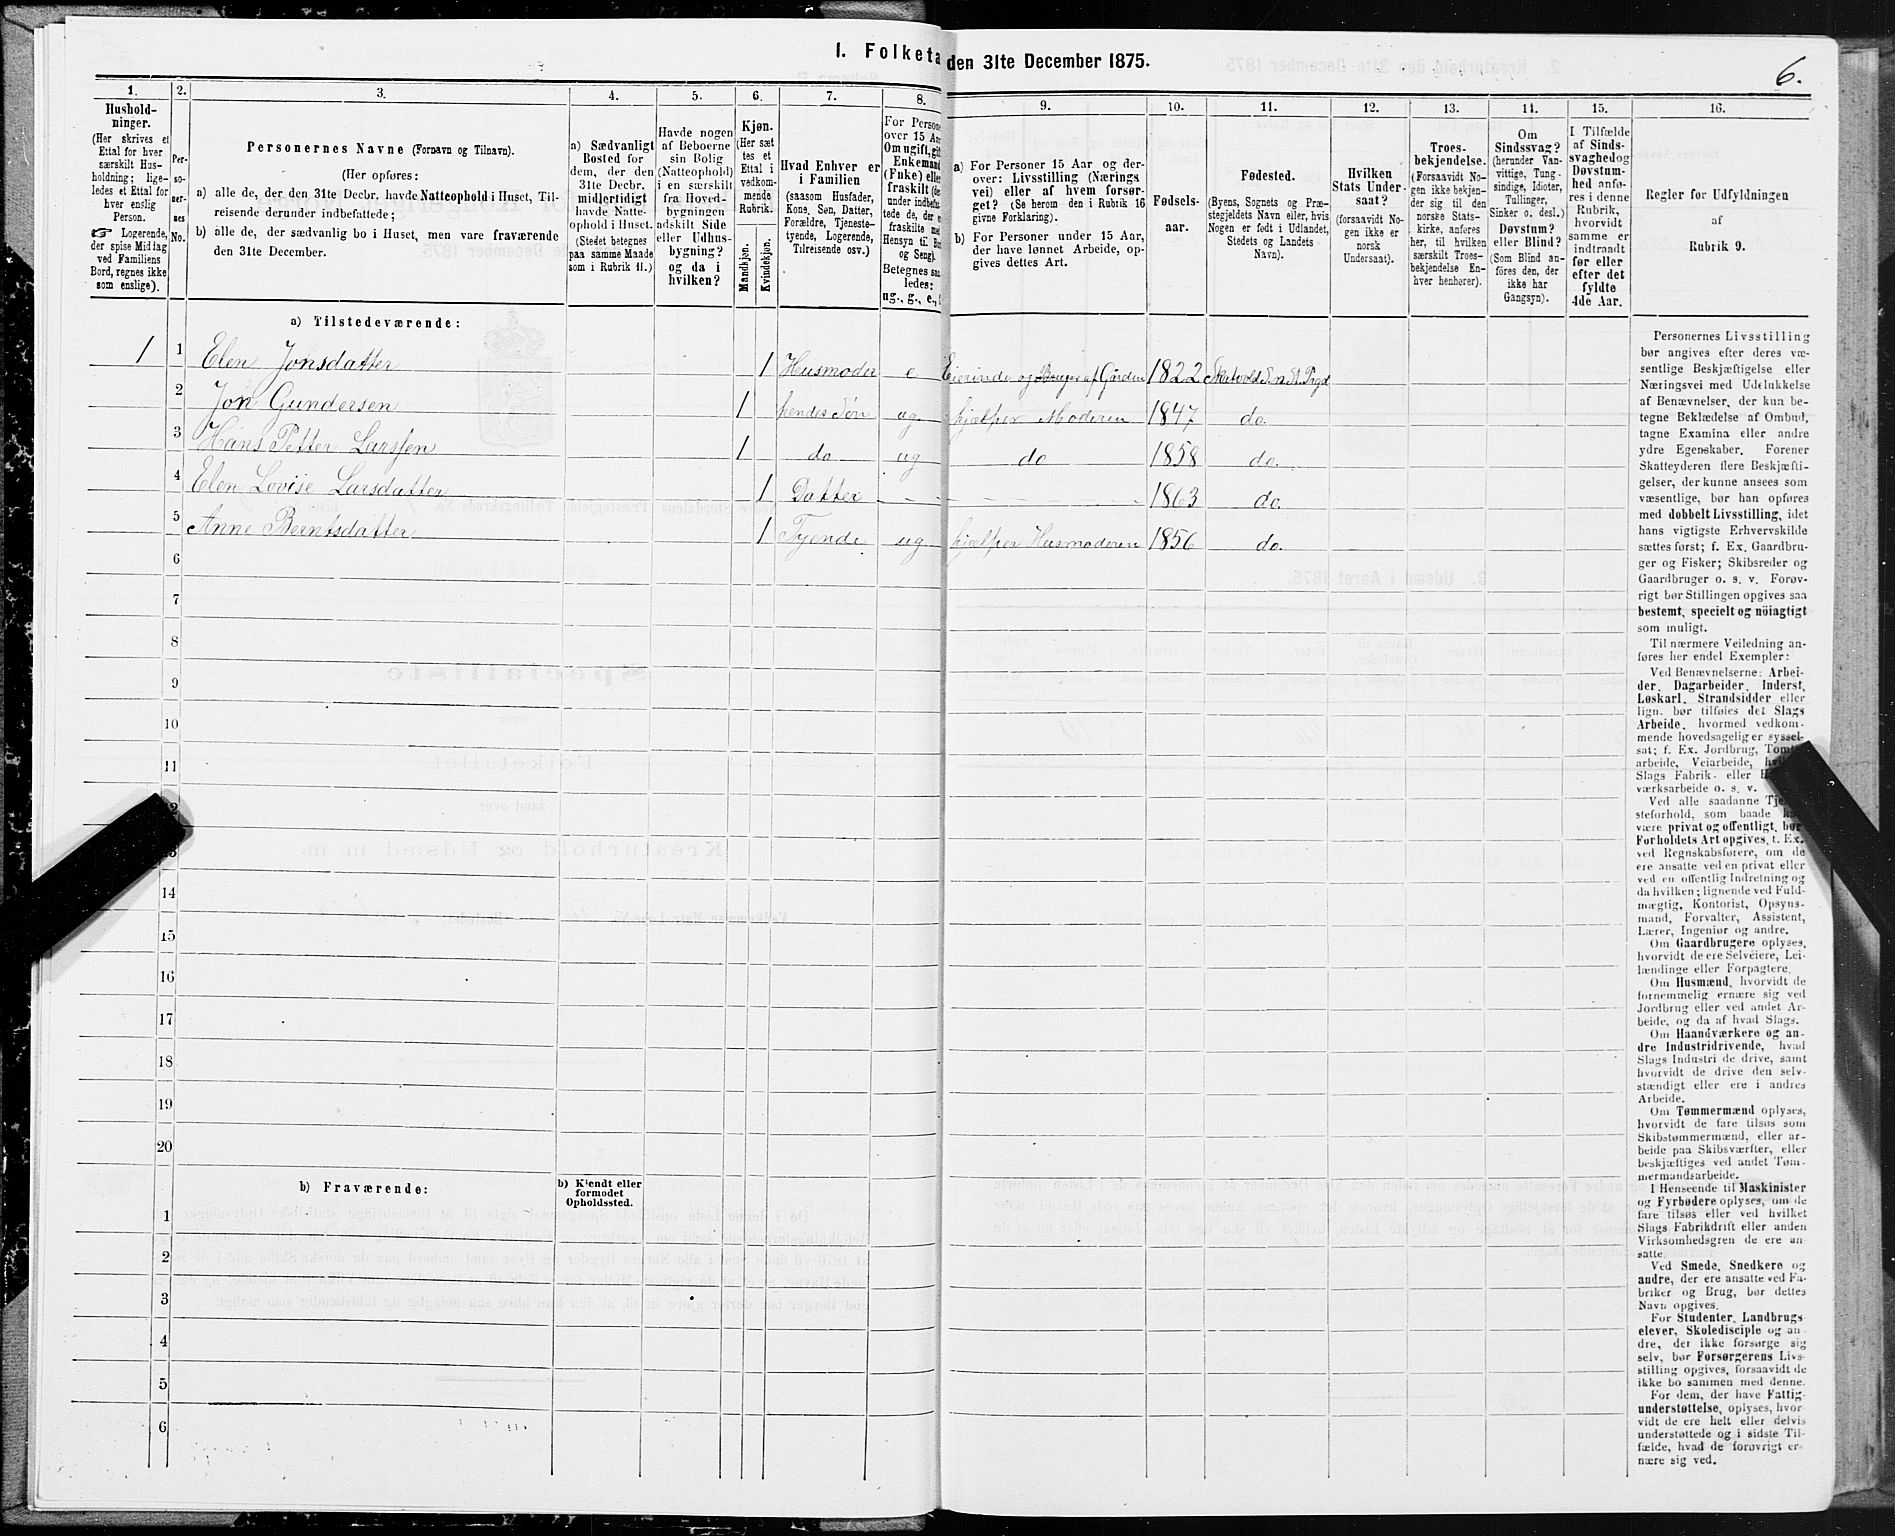 I. Folketa
den 31te December 1875.
6.
1.
Hushold-
ninger.
(Her skrives et
Ettal for hver
særskilt Hus-
holdning; lige-
ledes et Ettal for
hver enslig
Person.
☞ Logerende,
der spise Middag
ved Familiens
Bord, regnes ikke
som enslige).
2.
Per-
so-
ner-
nes
No.
3.
Personernes Navne (Fornavn og Tilnavn).
(Her opføres:
a) alle de, der den 31te Decbr. havde Natteophold i Huset, Til-
reisende derunder indbefattede;
b) alle de, der sædvanlig bo i Huset, men vare fraværende
den 31te December.
4.
a) Sædvanligt
Bosted for
dem, der den
31te Decbr.
midlertidigt
havde Natte-
ophold i Huset.
(Stedet betegnes
paa samme Maade
som i Rubrik 11.)
5.
Havde nogen
af Beboerne
sin Bolig
(Natteophold)
i en særskilt
fra Hoved-
bygningen
adskilt Side
eller Udhus-
bygning?
og da i
hvilken?
6.
Kjøn.
(Her sæt
tes et
Ettal i
vedkom-
mende
Rubrik.
Mandkjøn.
Kvindekjøn.
7.
Hvad Enhver er
i Familien
(saasom Husfader,
Kone, Søn, Datter,
Forældre, Tjeneste-
tyende, Logerende,
Tilreisende osv.)
8.
For Persone
over 15 Aa
Om ugift, gif
Enkemand
(Enke) elle
fraskilt (de
under indbefat
tede de, der
fraskilte med
Hensyn til Bo
og Seng).
Betegnes saa
ledes:
ug., g., e.,
9.
a) For Personer 15 Aar og der-
over: Livsstilling (Nærings
vei) eller af hvem forsør-
get? (Se herom den i Rubrik 16
givne Forklaring).
b) For Personer under 15 Aar,
der have lønnet Arbeide, op-
gives dettes Art.
10.
Fødsels-
aar.
11.
Fødested.
(Byens, Sognets og Præ-
stegjeldets Navn eller, hvis
Nogen er født i Udlandet,
Stedets og Landets
Navn).
12.
Hvilken
Stats Under-
saat?
(forsaavidt No-
gen ikke er
norsk
Undersaat).
13.
Troes-
bekjendelse.
(Forsaavidt No-
gen ikke bekjen-
der sig til den
norske Stats-
kirke, anføres
her, til hvilken
særskilt Troes-
bekjendelse En-
hver henhører).
14.
Om
Sindssvag?
(herunder Van-
vittige, Tung-
sindige, Idioter,
Tullinger,
Sinker o. desl.)
Døvstum?
eller Blind?
(Som Blind an-
føres den, der
ikke har
Gangsyn).
15.
I Tilfælde
af Sinds-
svaghed og
Døvstum-
hed anfø-
res i denne
Rubrik,
hvorvidt
samme er
indtraadt
før eller
efter det
fyldte
4de Aar.
16.
Regler for Udfyldningen
af
Rubrik 9.
a) Tilstedeværende:
1 1 Elen Jonsdatter 1 Husmoder e Eierinde og Bruger af Gården 1822
2 Jon Gundersen 1 hendes Søn ug. hjælper Moderen 1847 do.
3 Hans Petter Larssen 1 do ug do 1858 do.
4 Elen Lovise Larsdatter 1 Datter 1863 do.
5 Anne Berntsdatter 1 Tyende ug hjælper Husmoderen 1856 do.
6
7
8
9
10
11
2
3
14
15
16
17
18
19
20
b) Fraværende:
b) Kjendt eller
formodet
Opholdssted.
1
2
3
4
5
6
Personernes Livsstilling
bør angives efter deres væ-
sentlige Beskjæftigelse eller
Næringsvei med Udelukkelse
af Benævnelser, der kun be-
tegne Beklædelse af Ombud,
tagne Examina eller andre
ydre Egenskaber. Forener
Skatteyderen flere Beskjæfti-
gelser, der kunne ansees som
væsentlige, bør han opføres
med dobbelt Livsstilling, idet
hans vigtigste Erhvervskilde
sættes først; f. Ex. Gaardbru-
ger og Fisker; Skibsreder og
Gaardbruger o. s. v. Forøv-
rigt bør Stillingen opgives saa
bestemt, specielt og nöiagtigt
som muligt.
Til nærmere Veiledning an-
føres her endel Exempler:
Ved Benævnelserne: Arbei-
der, Dagarbeider, Inderst,
Løskarl, Strandsidder eller
lign. bør tilføies det Slags
Arbeide, hvormed vedkom-
mende hovedsagelig er syssel-
sat; f. Ex. Jordbrug, Tomt-
arbeide, Veiarbeide,
Slags Fabrik- eller
værksarbeide o. s. v.
Ved alle saadanne
steforhold, som baade
være privat og offentligt, bør
Forholdets Art opgives, t. Ex.
ved Regnskabsførere, om de
ere ansatte ved en privat eller
ved en offentlig Indretning og
da hvilken; lignende ved Fuld-
mægtig, Kontorist, Opsyns-
mand, Forvalter, Assistent,
Lærer, Ingeniør og andre.
Om Gaardbrugere oplyses,
hvorvidt de ere Selveiere, Lei-
lændinge eller Forpagtere.
Om Husmænd, hvorvidt de
fornemmelig ernære sig ved
Jordbrug eller ved andet Ar-
beide, og da af hvad Slags.
Om Haandværkere og an-
dre Industridrivende, hvad
Slags Industri de drive, samt
hvorvidt de drive den selv-
stændigt eller ere i andres
Arbeide.
Om Tømmermænd oplyses,
hvorvidt de fare tilsøs som
Skibstømmermænd, eller ar-
beide paa Skibsværfter, eller
beskjæftiges ved andet Tøm-
mermandsarbeide.
I Henseende til Maskinister
og Fyrbødere oplyses, om de
fare tilsøs eller ved hvilket
Slags Fabrikdrift eller anden
Virksomhedsgren de ere an-
satte.
Ved Smede, Snedkere og
andre, der ere ansatte ved Fa-
briker og Brug, bør dettes
Navn opgives.
For Studenter, Landbrugs-
elever, Skoledisciple og an-
dre, der ikke forsørge sig
selv, bør Forsørgerens Livs-
stilling opgives, forsaavidt de
ikke bo sammen med denne.
For dem, der have Fattig-
understøttelse, oplyses, hvor-
vidt de ere helt eller delvis
understøttede og i sidste Til-
fælde, hvad de forøvrigt er-
nære sig ved.